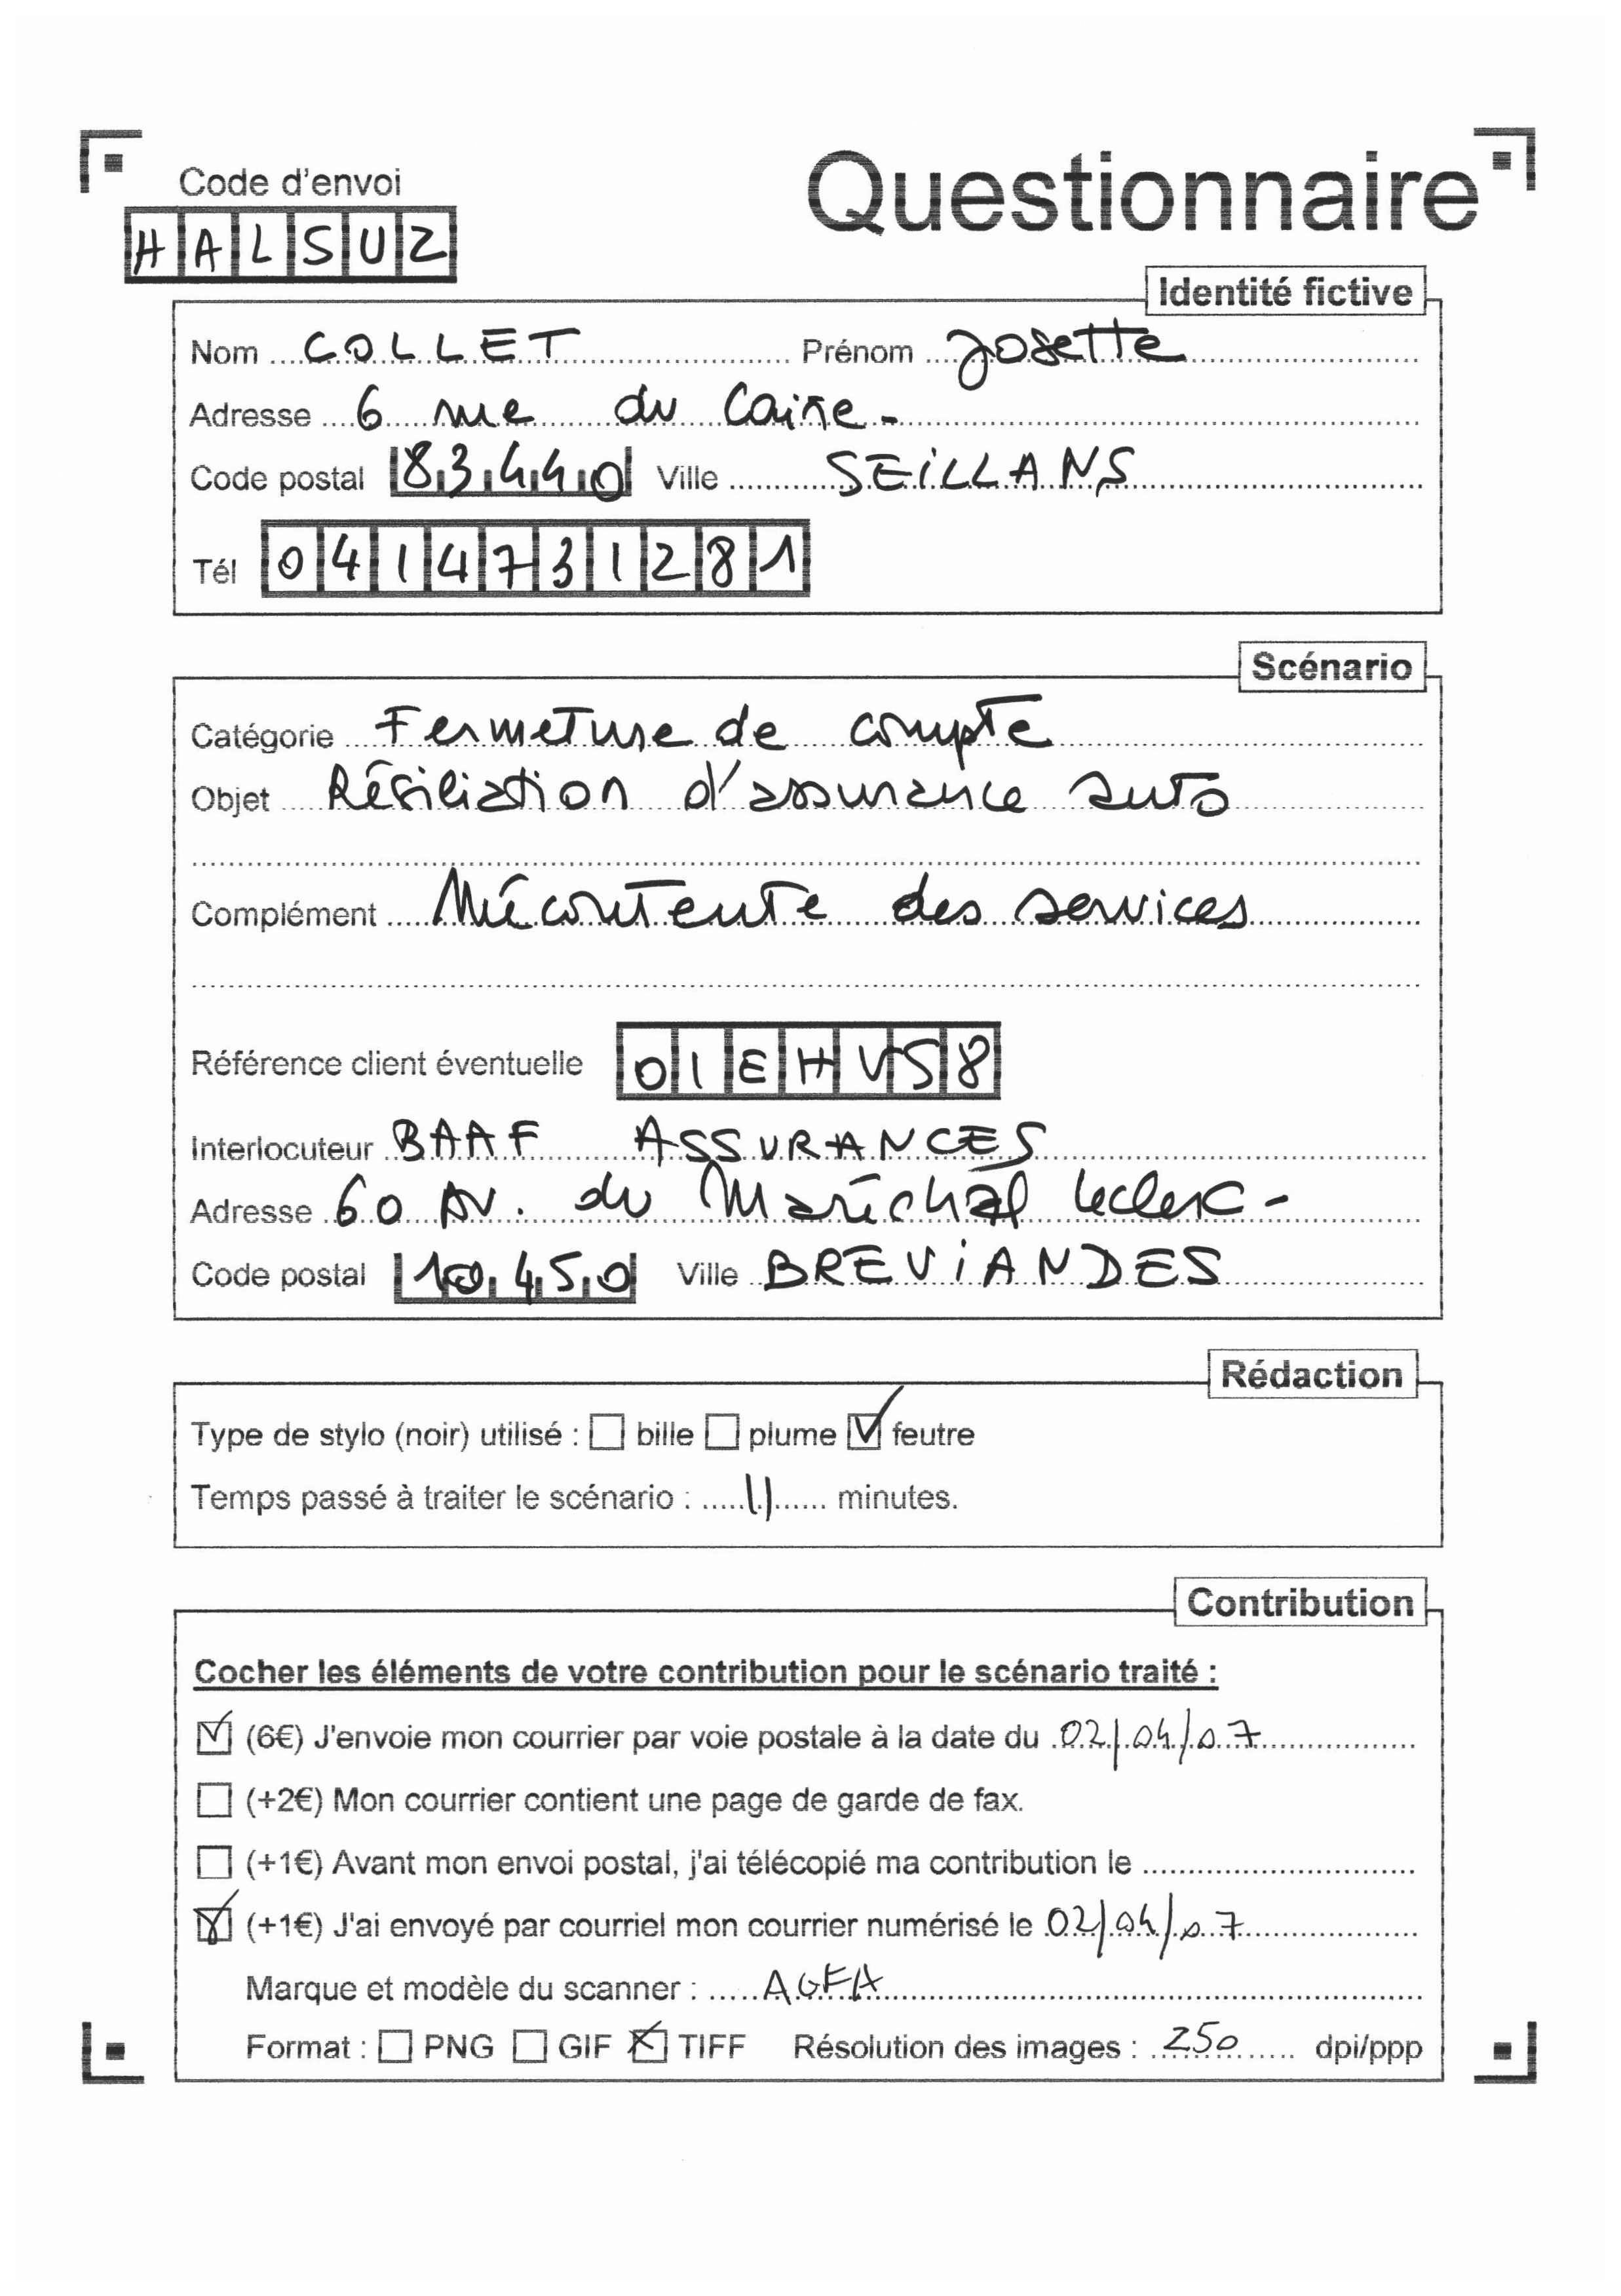 Code d'envoi
Questionnaire
HALSUZ
Identité fictive
Nom COLLET Prénom Josette
Adresse 6 rue du Caire-
Code postal 83440 Ville SEILLANS
Tél 0414731281
Scénario
Catégorie Fermeture de compte
Objet Résiliation d'assurance auto
Complément Mécontente des services
Référence client éventuelle OIEHVS8
Interlocuteur BAAF ASSURANCES
Adresse 60 AV. du Maréchal Leclerc-
Code postal 10450 Ville BREVIANDES
Rédaction
Type de stylo (noir) utilisé : bille plume feutre
Temps passé à traiter le scénario : 11 minutes.
Contribution
Cocher les éléments de votre contribution pour le scénario traité :
(6€) J'envoie mon courrier par voie postale à la date du 02/04/07
(+2€) Mon courrier contient une page de garde de fax.
(+1€) Avant mon envoi postal, j'ai télécopié ma contribution le
(+1€) J'ai envoyé par courriel mon courrier numérisé le 02/04/07
Marque et modèle du scanner : AGFA
Format : PNG GIF TIFF Résolution des images : 250 dpi/ppp